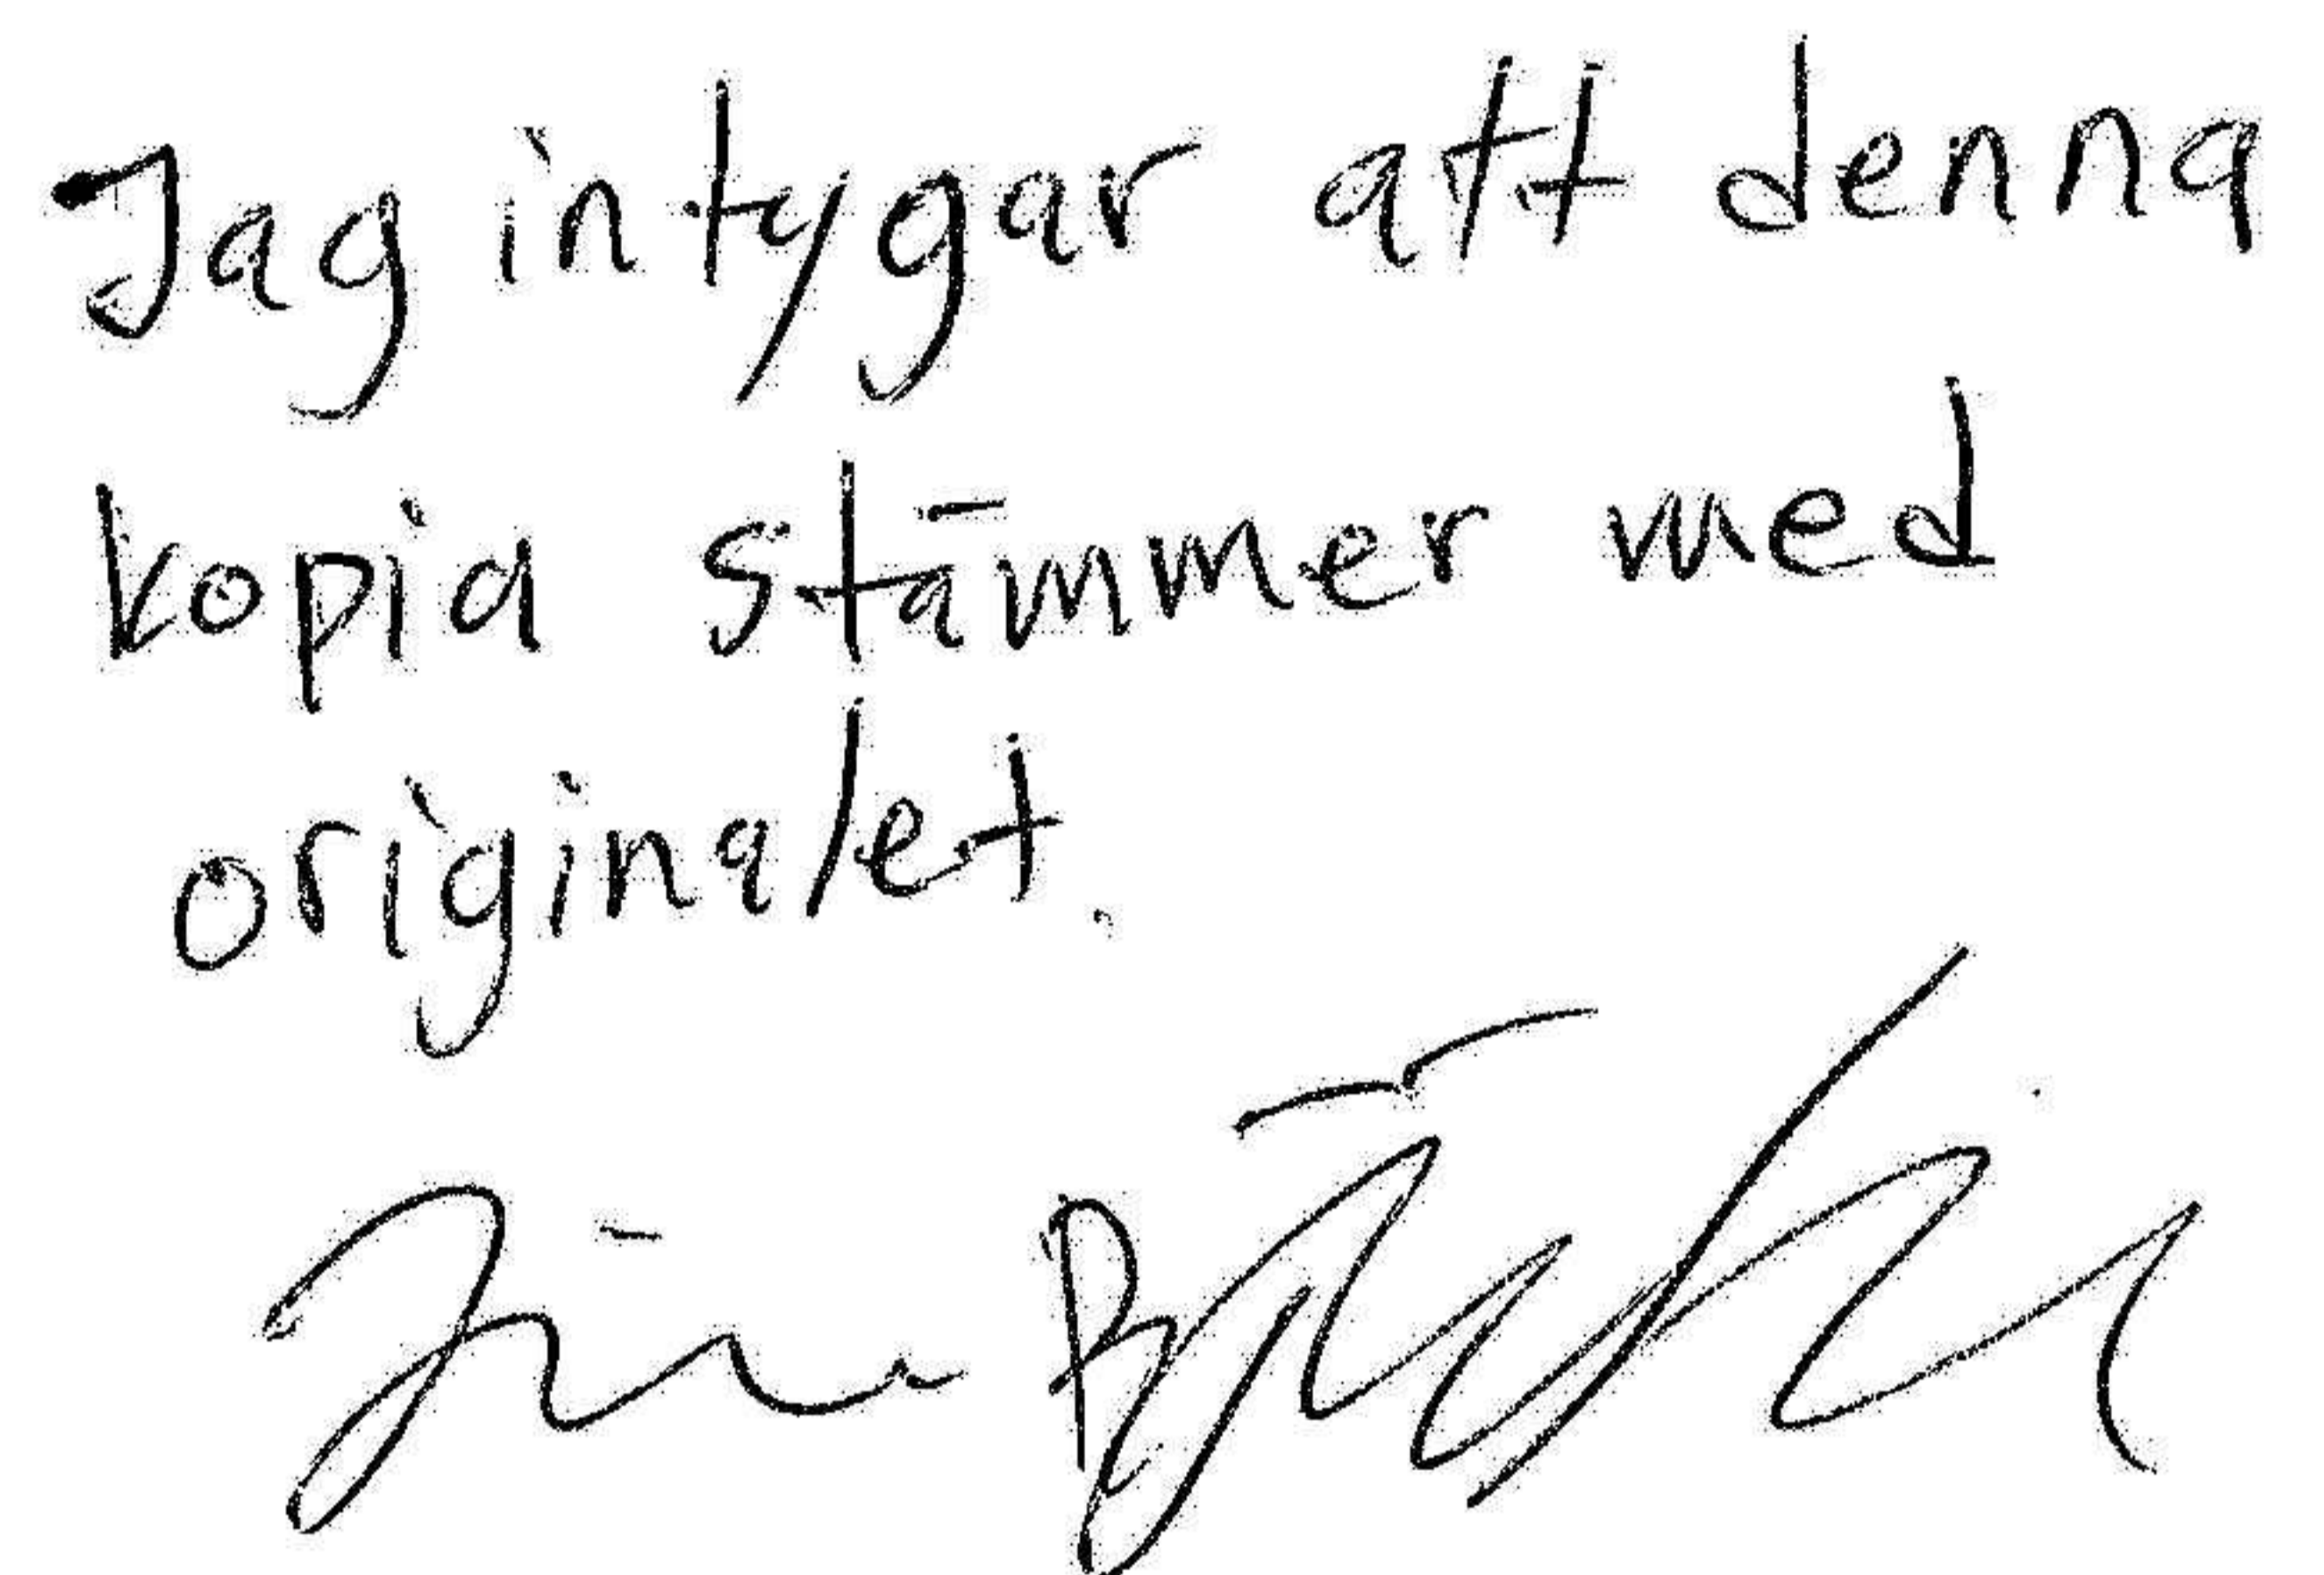 Jag intygar att denna
kopia stämmer med
originalet.